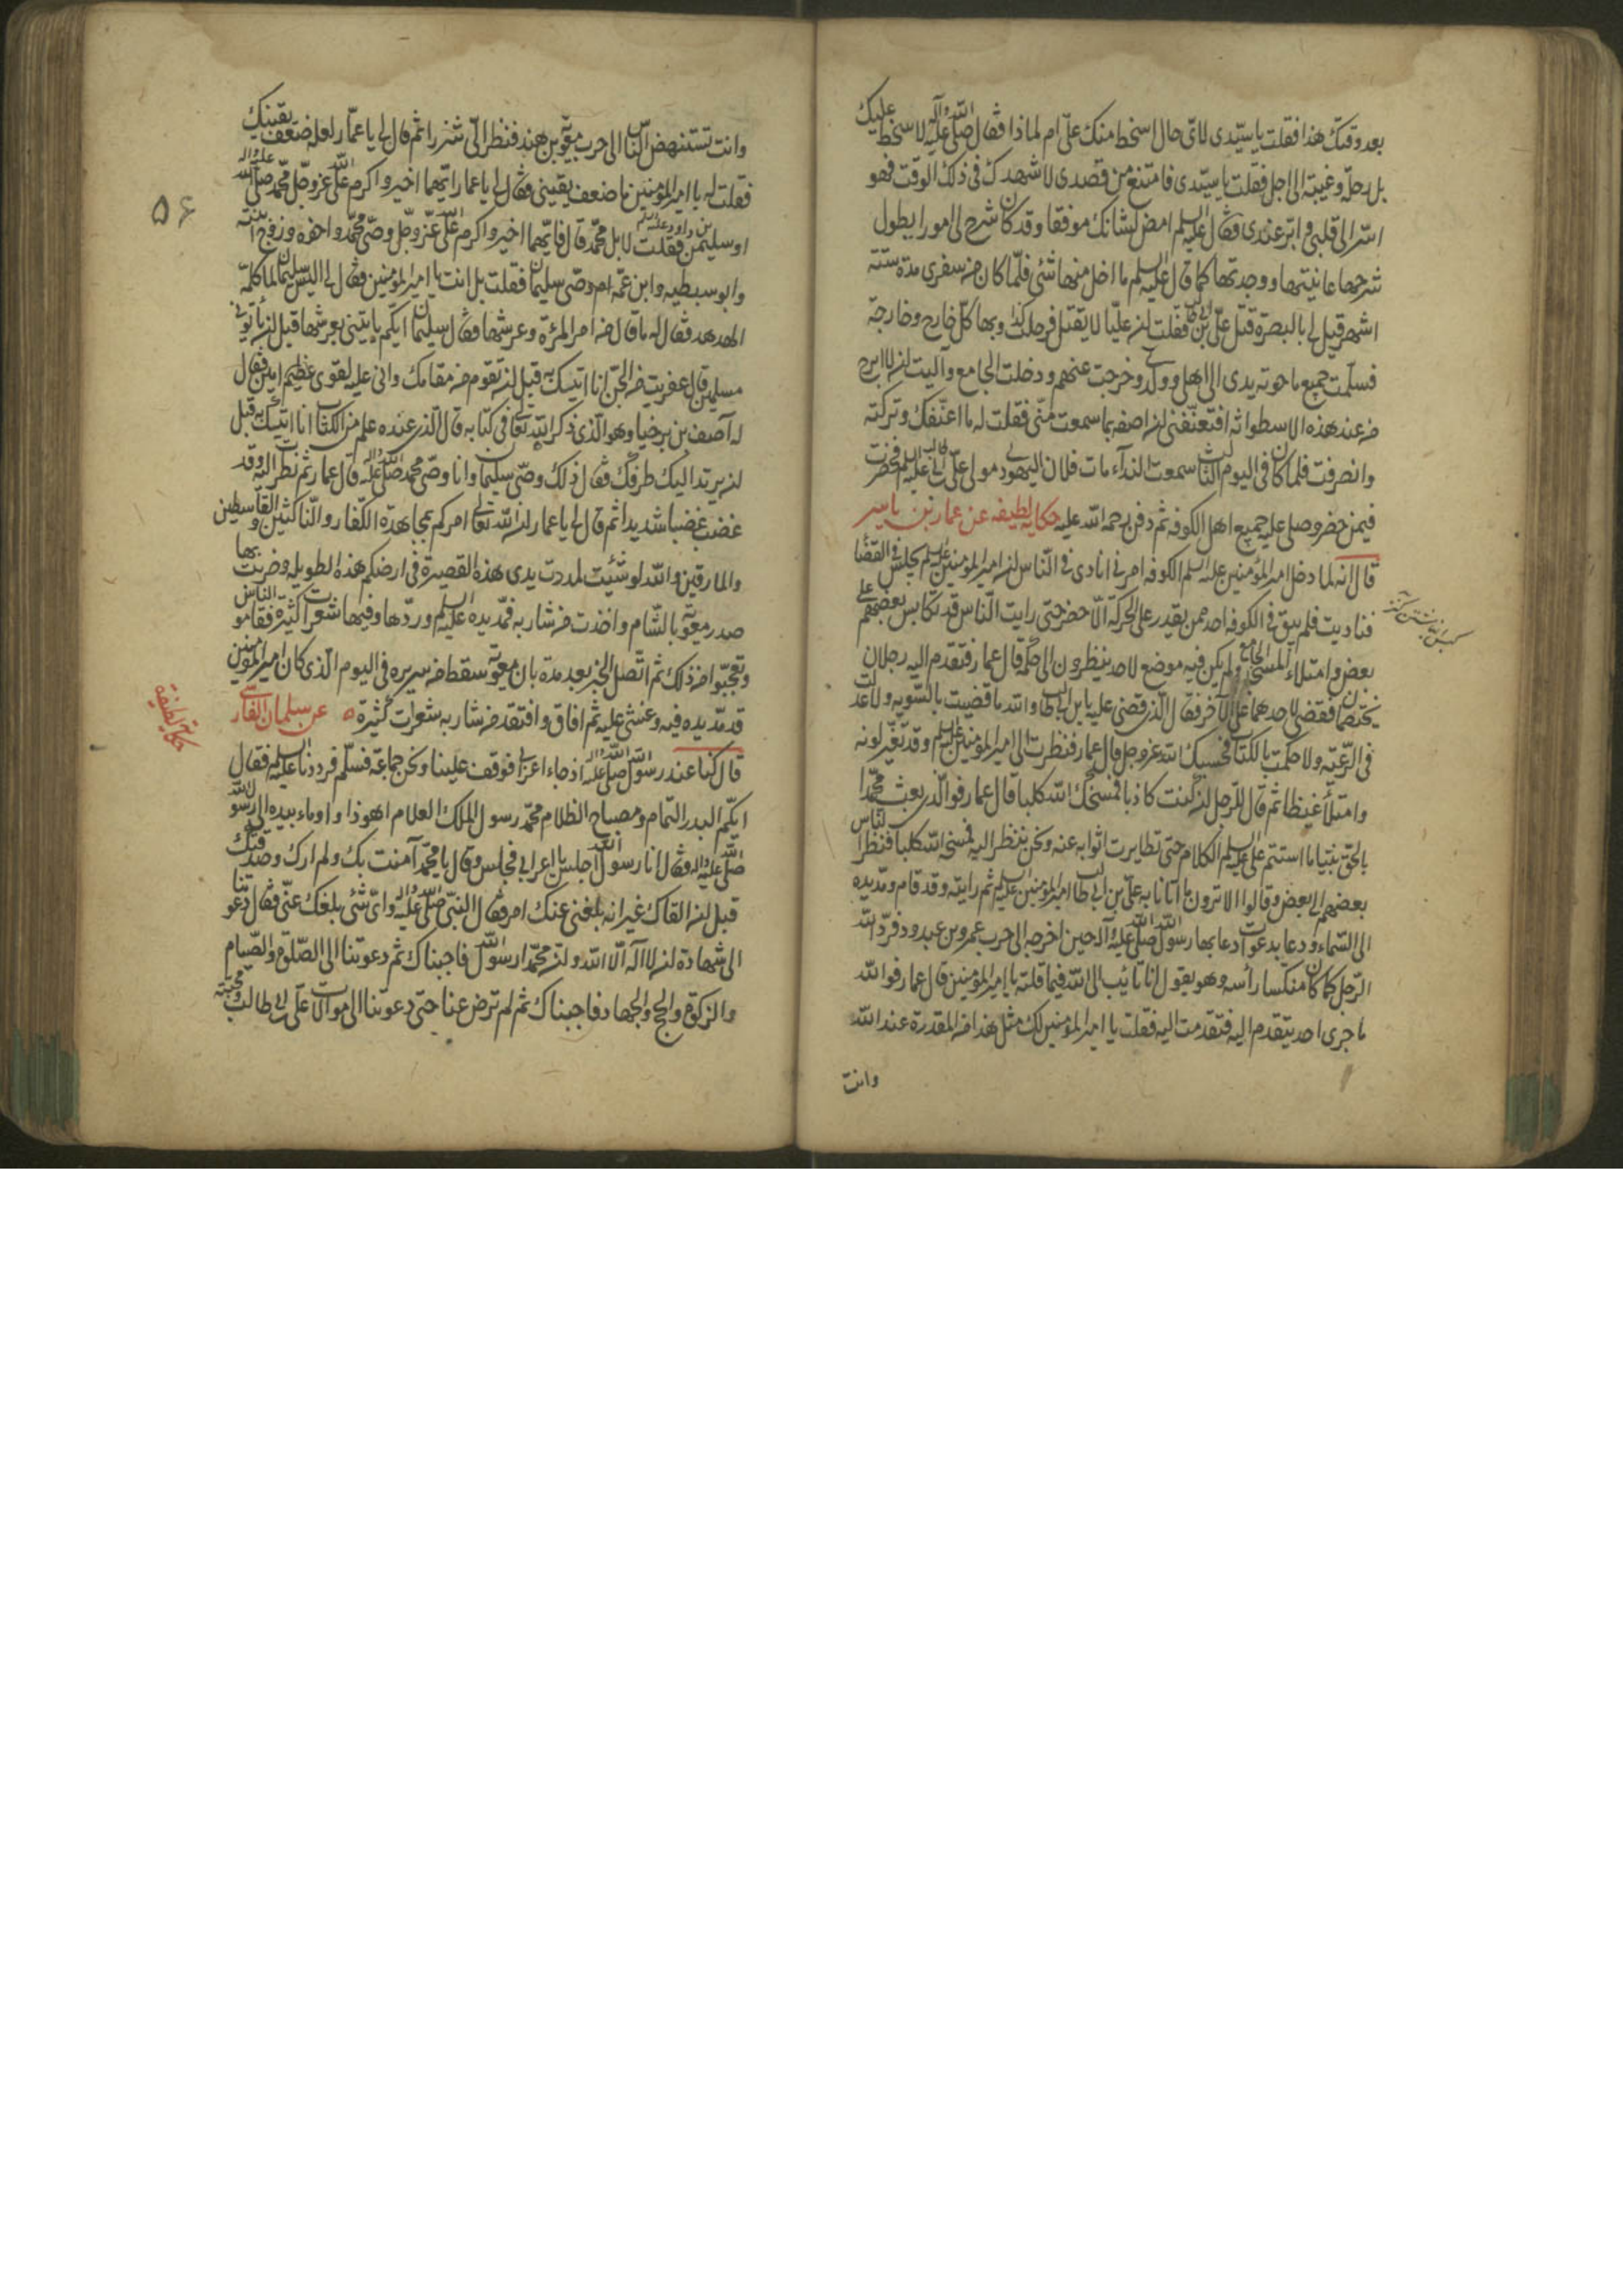 بعد وقتك هذا فقلت يا سيّدى لاىّ حال اسخط منك علىّ ام لماذا فقال صلى الله عليه وآله لا سخط عليك
بل رحلة وغيبة الى اجل فقلت يا سيّدى فامتنع من قصدى لاشهدك فى ذلك الوقت فهو
اسرّ الى قلبى وابرّ عندى فقال عليه السلم امض لشانك موفقا وقد كان شرح لى امورا يطول
شرحها عاينتها ووجدتها كما قال عليه السلم ما اخل منها شئ فلمّا كان من سفرى مدة ستة
اشهر قيل لى بالبصرة قتل علىّ بن ابى طالب فقلت ان عليّا لا يقتل فرحلت وبها كل خارج وخارجة
فسلّمت جميع ما حوته يدى الى اهلى وولدى وخرجت عنهم ودخلت الجامع وآليت ان لا ابرح
من عند هذه الاسطوانه افتعنّفنى ان اصفه بما سمعت منّى فقلت له ما اعنّفك وتركته
وانصرفت فلما كان فى اليوم الثالث سمعت النداء مات فلان اليهودى مولى علىّ بن ابى طالب عليه السلم فحضرت
فيمن حضر وصلى عليه جميع اهل الكوفه ثم دفن رحمة الله عليه حكاية لطيفه عن عمار بن ياسر
قال انه لما دخل امير المؤمنين عليه السلم الكوفه امرنى انادى فى الناس ان امير المؤمنين عليه السلم يجلس فى القضا
فناديت فلم يبق فى الكوفه احد ممن يقدر على الحركة الّا حضر حتى رايت النّاس قد تكابس بعضهم على
بعض وامتلاء المسجد الجامع ولم يكن فيه موضع لاحد ينظرون الى حكمه قال عمار فتقدم اليه رجلان
يختصمان فقضى لاحدهما على الآخر فقال الذى قضى عليه يا بن ابى طالب والله ما قضيت بالسّويه ولا عدلت
فى الرّعيّه ولا حكمت بالكتاب فحسبك الله عزوجل قال عمار فنظرت الى امير المؤمنين عليه السلم وقد تغيّر لونه
وامتلأ غيظا ثم قال للرّجل ان كنت كاذبا فمسخك الله كلبا قال عمار فوالّذى بعث محمّدا
بالحق نبيّا ما استتم علىّ عليه السلم الكلام حتى تطايرت اثوابه عنه ونحن ننظر اليه فمسخه الله كلبا فنظر الناس
بعضهم الى بعض وقالوا الا ترون ما اتانا به علىّ بن ابى طالب امير المؤمنين عليه السلم ثم رايته وقد قام ومدّ يده
الى السّماء ودعا بدعوات دعا بها رسول الله صلى الله عليه وآله حين اخرجه الى حرب عمرو بن عبدود فردّ الله
الرّجل كما كان منكّسا رأسه وهو يقول انا تائب الى الله فيما قلته يا امير المؤمنين قال عمار فوالله
ما جرى احد يتقدم اليه فتقدمت اليه فقلت يا امير المؤمنين لك مثل هذا من المقدرة عند الله
وانت
۵۶
وانت تستنهض النّاس الى حرب معوية بن هند فنظر الىّ شزرا ثم قال لى يا عمّار لعله ضعف يقينك
فقلت له يا امير المؤمنين ما ضعف يقينى فقال لى يا عمار ايّهما اخير واكرم على الله عزوجل محمّد صلى الله عليه وآله
او سليمن بن داود عليه السلم فقلت لا بل محمّد قال فايّهما اخير واكرم على الله عزوجل وصىّ محمّد واخوه وزوج ابنته
وابو سبطيه وابن عمّه ام وصىّ سليمان فقلت بل انت يا امير المؤمنين فقال لى اليس سليمان لما كلمه
الهدهد فقال له ما قال من امر المرئة وعرشها فقال سليمان ايكم ياتينى بعرشها قبل ان يأتونى
مسلمين قال عفريت من الجنّ انا اتيك به قبل ان تقوم من مقامك وانى عليه لقوى عظيم امين فقال
له آصف بن برخيا وهو الّذى ذكر الله تعالى فى كتابه قال الذى عنده علم من الكتاب انا اتيك به قبل
ان يرتد اليك طرفك فقال ذلك وصىّ سليمان وانا وصىّ محمد صلى الله عليه وآله قال عمار ثم نظر اليه وقد
غضب غضبا شديدا ثم قال لى يا عمار ان الله تعالى امركم بمجاهدة الكفار والنّاكثين والقاسطين
والمارقين والله لو شئت لمددت يدى هذه القصيرة فى ارضكم هذه الطويلة وضربت بها
صدر معوية بالشّام واخذت من شاربه فمد يده عليه السلم وردّها وفيها شعرات كثيرة فقاموا الناس
وتعجّبوا من ذلك ثم اتّصل الخبر بعد مدة بان معوية سقط من سريره فى اليوم الّذى كان امير المؤمنين
قد مدّ يده فيه وغشى عليه ثم افاق وافتقد من شاربه شعرات كثيرة عن سلمان الفارسى
حكاية لطيفة
قال كنّا عند رسول الله صلى الله عليه وآله اذ جاء اعرابى فوقف علينا ونحن جماعة فسلّم فرددنا عليه السلم فقال
ايكم البدر التمام ومصباح الظلام محمّد رسول الملك العلام اهو ذا واوماء بيده الى رسول الله
صلى الله عليه وآله فقال انا رسول الله اجلس يا اعرابى فجلس وقال يا محمّد آمنت بك ولم ارك وصدّقتك
قبل ان القاك غير انه بلغنى عنك امر فقال النبىّ صلى الله عليه وآله واىّ شئ بلغك عنّى فقال دعوتنا
الى شهادة ان لا اله الّا الله وان محمّدا رسول الله فاجبناك ثم دعوتنا الى الصّلوة والصّيام
والزكوة والحج والجهاد فاجبناك ثم لم ترض عنا حتى دعوتنا الى موالات على بن ابى طالب ومحبّته